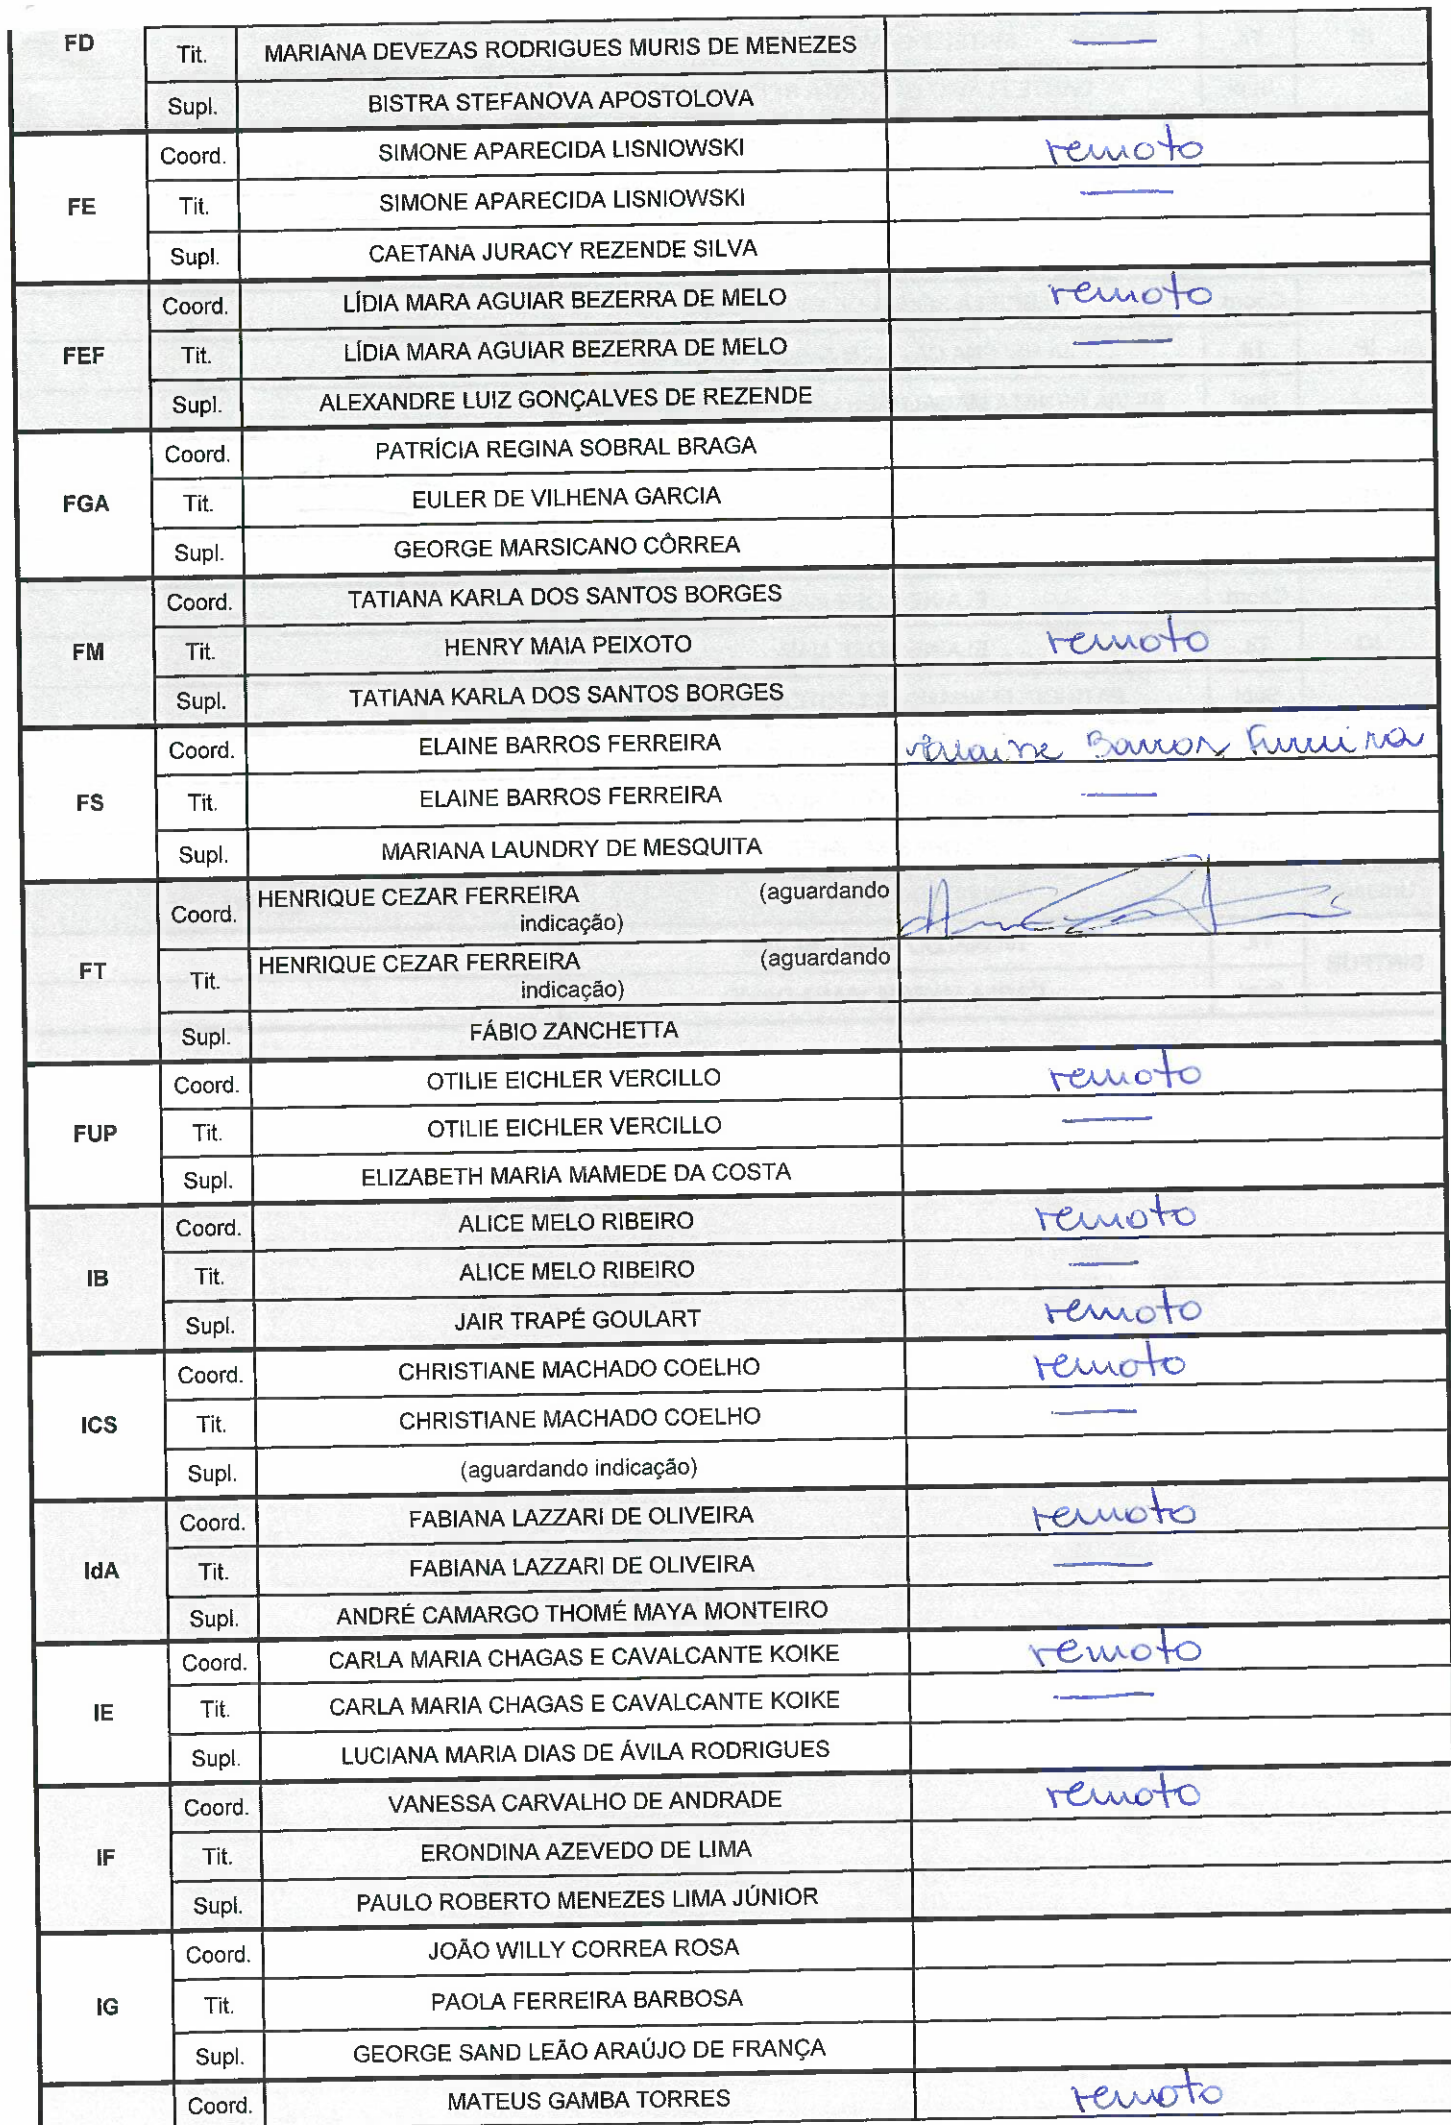 FD Tit. MARIANA DEVEZAS RODRIGUES MURIS DE MENEZES —
Supl. BISTRA STEFANOVA APOSTOLOVA
Coord. SIMONE APARECIDA LISNIOWSKI remoto
FE Tit. SIMONE APARECIDA LISNIOWSKI —
Supl. CAETANA JURACY REZENDE SILVA
Coord. LÍDIA MARA AGUIAR BEZERRA DE MELO remoto
FEF Tit. LÍDIA MARA AGUIAR BEZERRA DE MELO —
Supl. ALEXANDRE LUIZ GONÇALVES DE REZENDE
Coord. PATRÍCIA REGINA SOBRAL BRAGA
FGA Tit. EULER DE VILHENA GARCIA
Supl. GEORGE MARSICANO CÔRREA
Coord. TATIANA KARLA DOS SANTOS BORGES
FM Tit. HENRY MAIA PEIXOTO remoto
Supl. TATIANA KARLA DOS SANTOS BORGES
Coord. ELAINE BARROS FERREIRA Elaine Barros Ferreira
FS Tit. ELAINE BARROS FERREIRA —
Supl. MARIANA LAUNDRY DE MESQUITA
Coord. HENRIQUE CEZAR FERREIRA (aguardando
indicação)
FT Tit. HENRIQUE CEZAR FERREIRA (aguardando
indicação)
Supl. FÁBIO ZANCHETTA
Coord. OTILIE EICHLER VERCILLO remoto
FUP Tit. OTILIE EICHLER VERCILLO —
Supl. ELIZABETH MARIA MAMEDE DA COSTA
Coord. ALICE MELO RIBEIRO remoto
IB Tit. ALICE MELO RIBEIRO —
Supl. JAIR TRAPÉ GOULART remoto
Coord. CHRISTIANE MACHADO COELHO remoto
ICS Tit. CHRISTIANE MACHADO COELHO —
Supl. (aguardando indicação)
Coord. FABIANA LAZZARI DE OLIVEIRA remoto
IdA Tit. FABIANA LAZZARI DE OLIVEIRA —
Supl. ANDRÉ CAMARGO THOMÉ MAYA MONTEIRO
Coord. CARLA MARIA CHAGAS E CAVALCANTE KOIKE remoto
IE Tit. CARLA MARIA CHAGAS E CAVALCANTE KOIKE —
Supl. LUCIANA MARIA DIAS DE ÁVILA RODRIGUES
Coord. VANESSA CARVALHO DE ANDRADE remoto
IF Tit. ERONDINA AZEVEDO DE LIMA
Supl. PAULO ROBERTO MENEZES LIMA JÚNIOR
Coord. JOÃO WILLY CORREA ROSA
IG Tit. PAOLA FERREIRA BARBOSA
Supl. GEORGE SAND LEÃO ARAÚJO DE FRANÇA
Coord. MATEUS GAMBA TORRES remoto